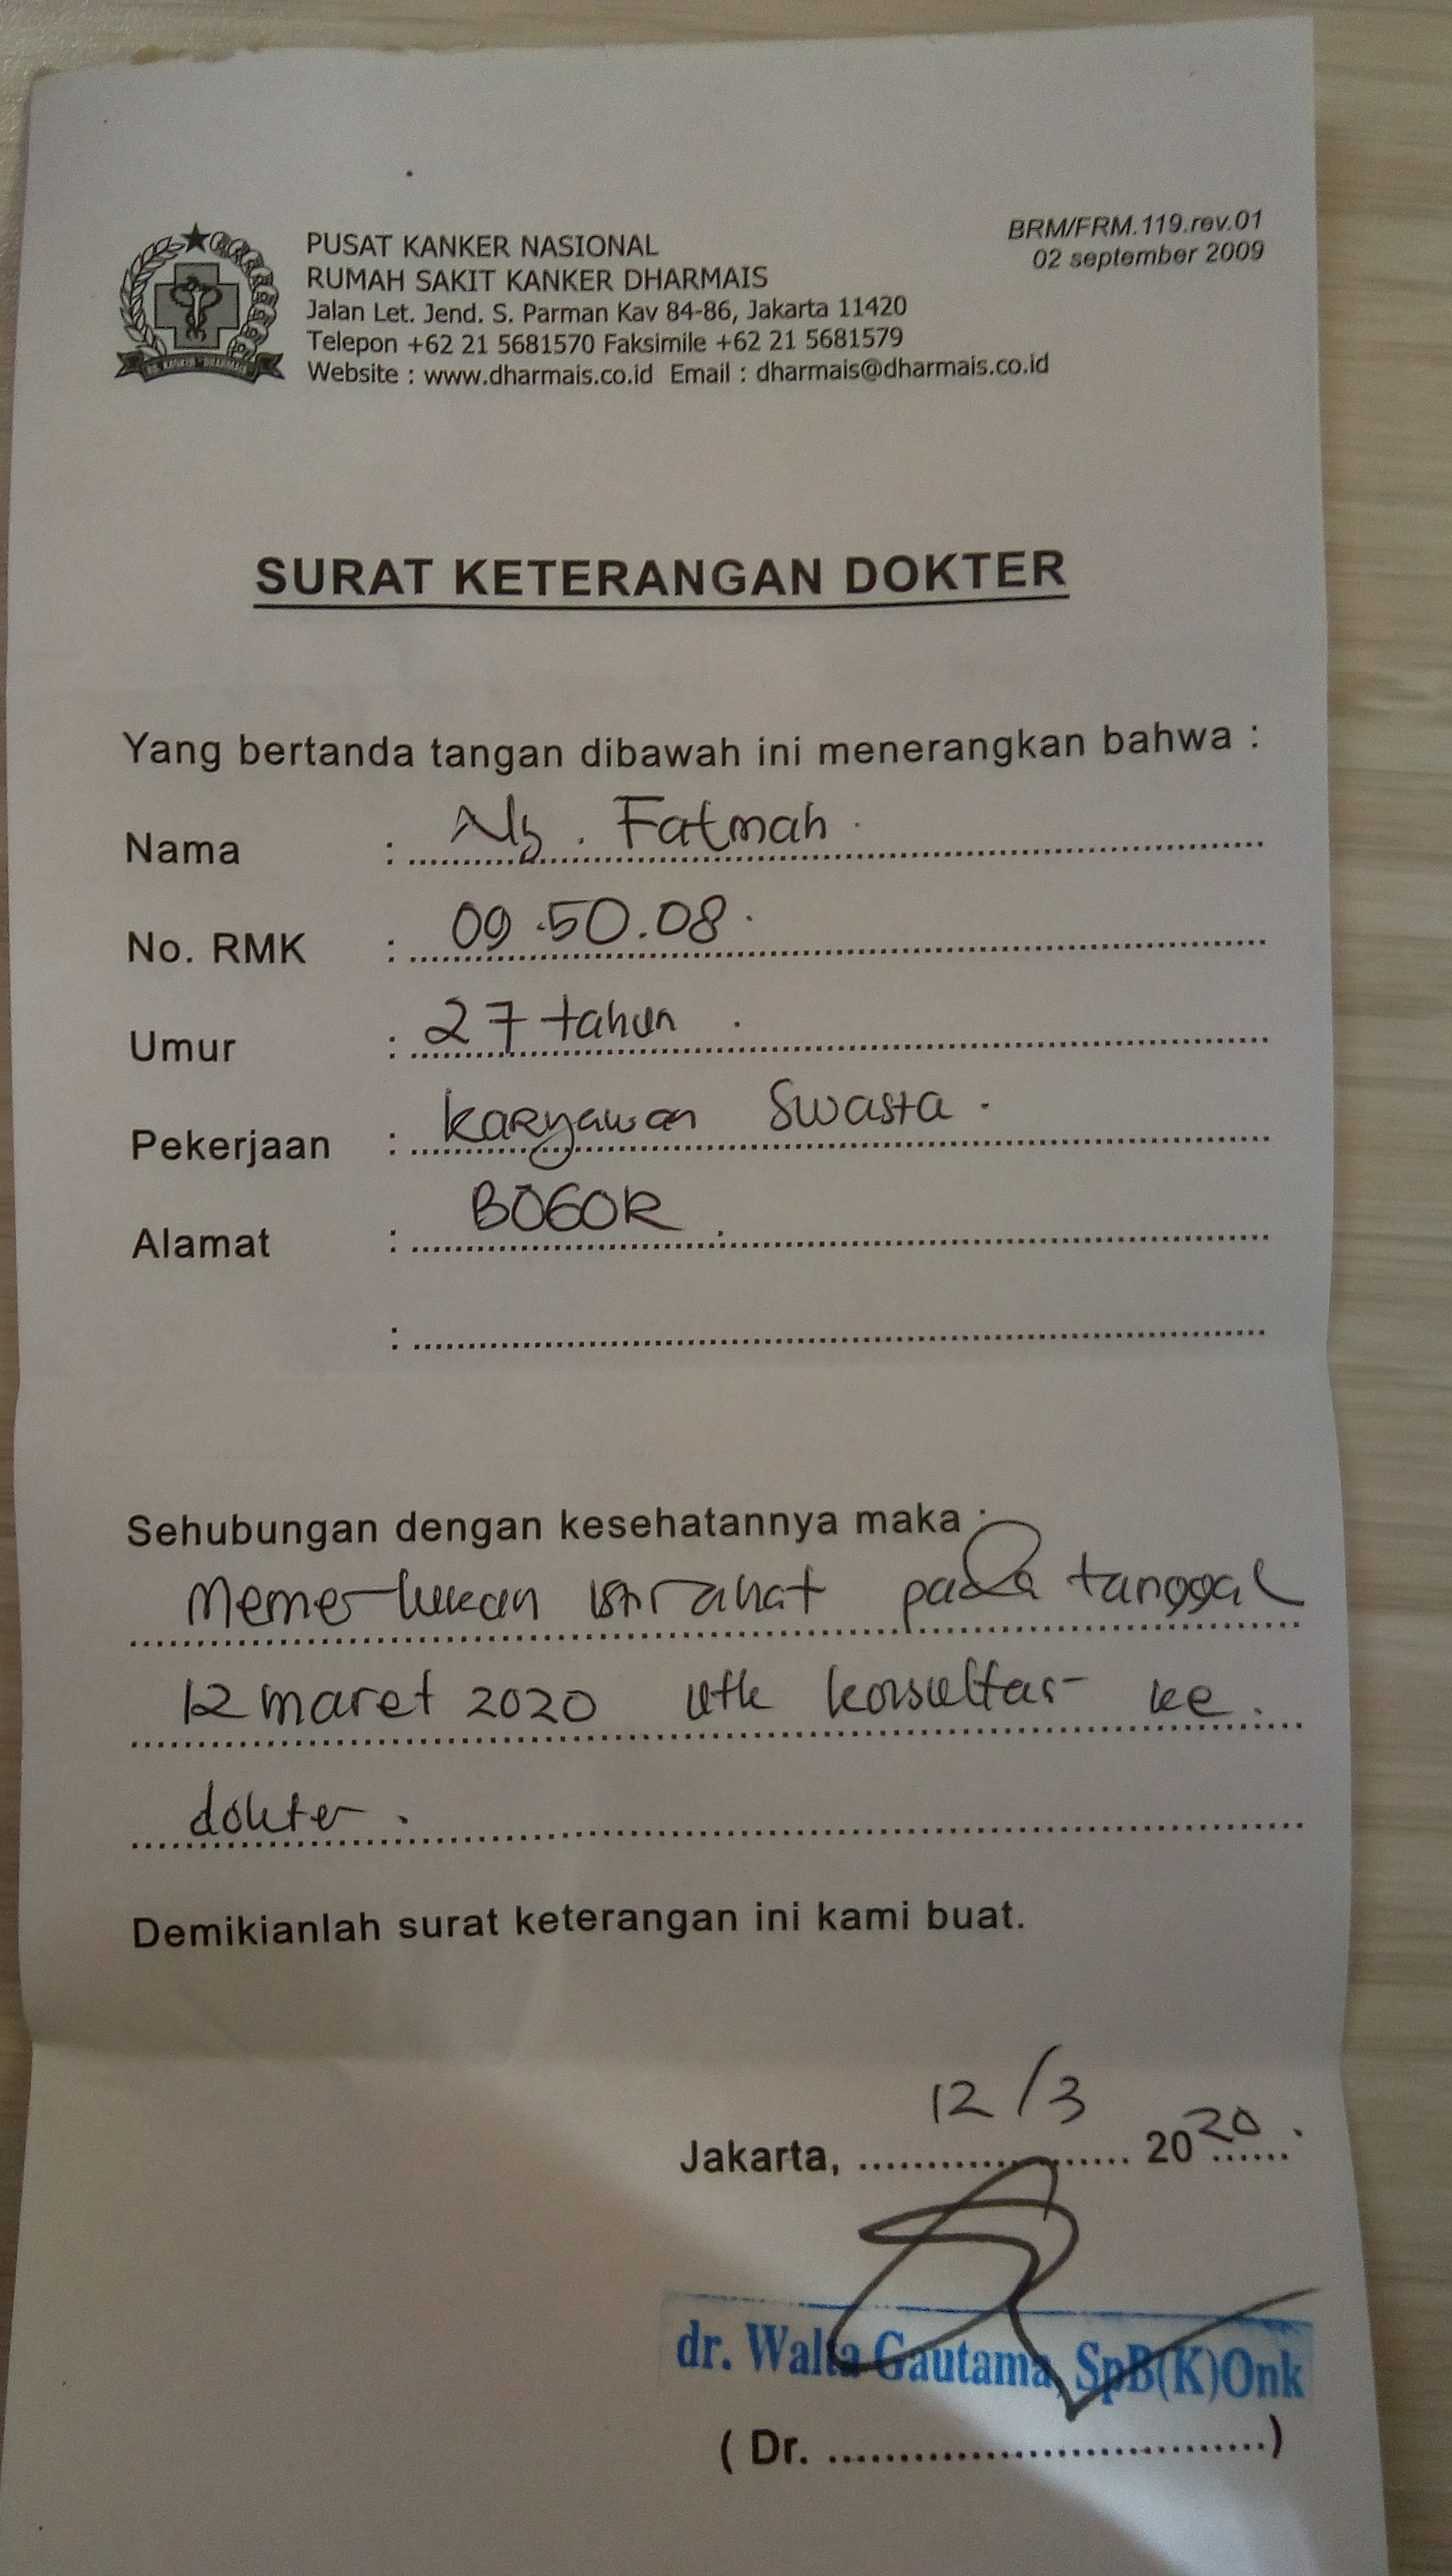 PUSAT KANKER NASIONAL
RUMAH SAKIT KANKER DHARMAIS
Jalan Let. Jend. S. Parman Kav 84-86, Jakarta 11420
Telepon +62 21 5681570 Faksimile +62 21 5681579
Website : www.dharmais.co.id Email : dharmais@dharmais.co.id
BRM/FRM.119.rev.01
02 september 2009
SURAT KETERANGAN DOKTER
Yang bertanda tangan dibawah ini menerangkan bahwa :
Nama : Ny. Fatmah
No. RMK : 09.50.08
Umur : 27 tahun
Pekerjaan : Karyawan Swasta
Alamat : BOGOR
:
Sehubungan dengan kesehatannya maka :
Memerlukan istirahat pada tanggal
12 maret 2020 utk konsultasi ke
dokter.
Demikianlah surat keterangan ini kami buat.
Jakarta, 12/3 2020
dr. Walta Gautama, SpB(K)Onk
( Dr. ................................)